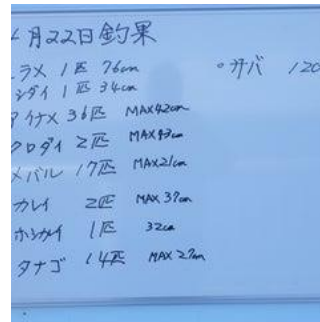 月22日釣果
ラメ 1匹 76cm
シダイ 1匹 34cm
アイナメ 36匹 MAX42cm
クロダイ 2匹 MAX43cm
メバル 17匹 MAX21cm
カレイ 2匹 MAX37cm
ホシカレイ 1匹 32cm
タナゴ 14匹 MAX27cm
○サバ 120